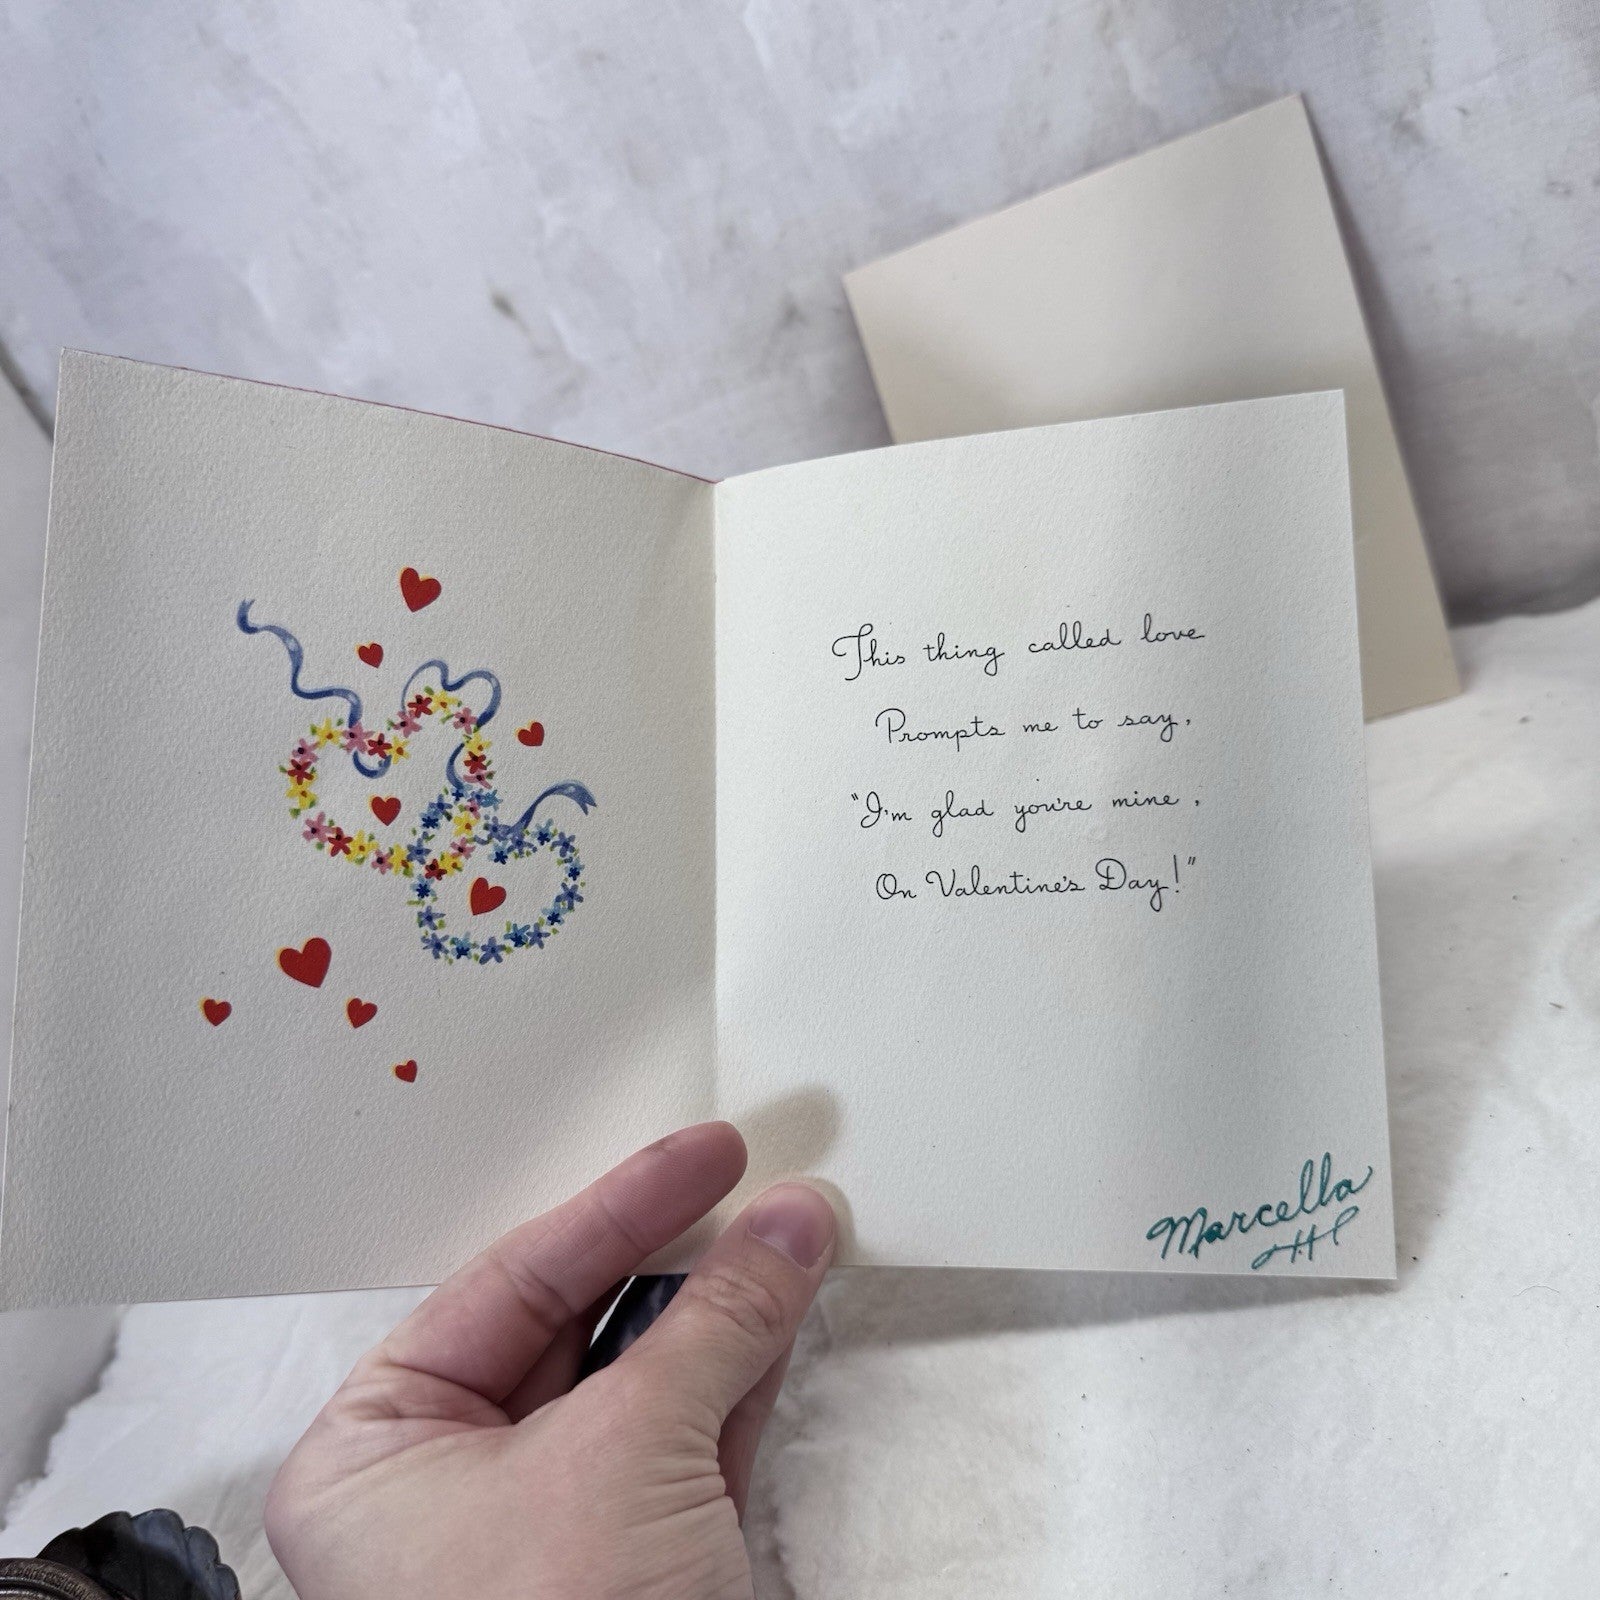 This thing called love
Prompts me to say,
"I'm glad you're mine,
On Valentine's Day!"
Marcella